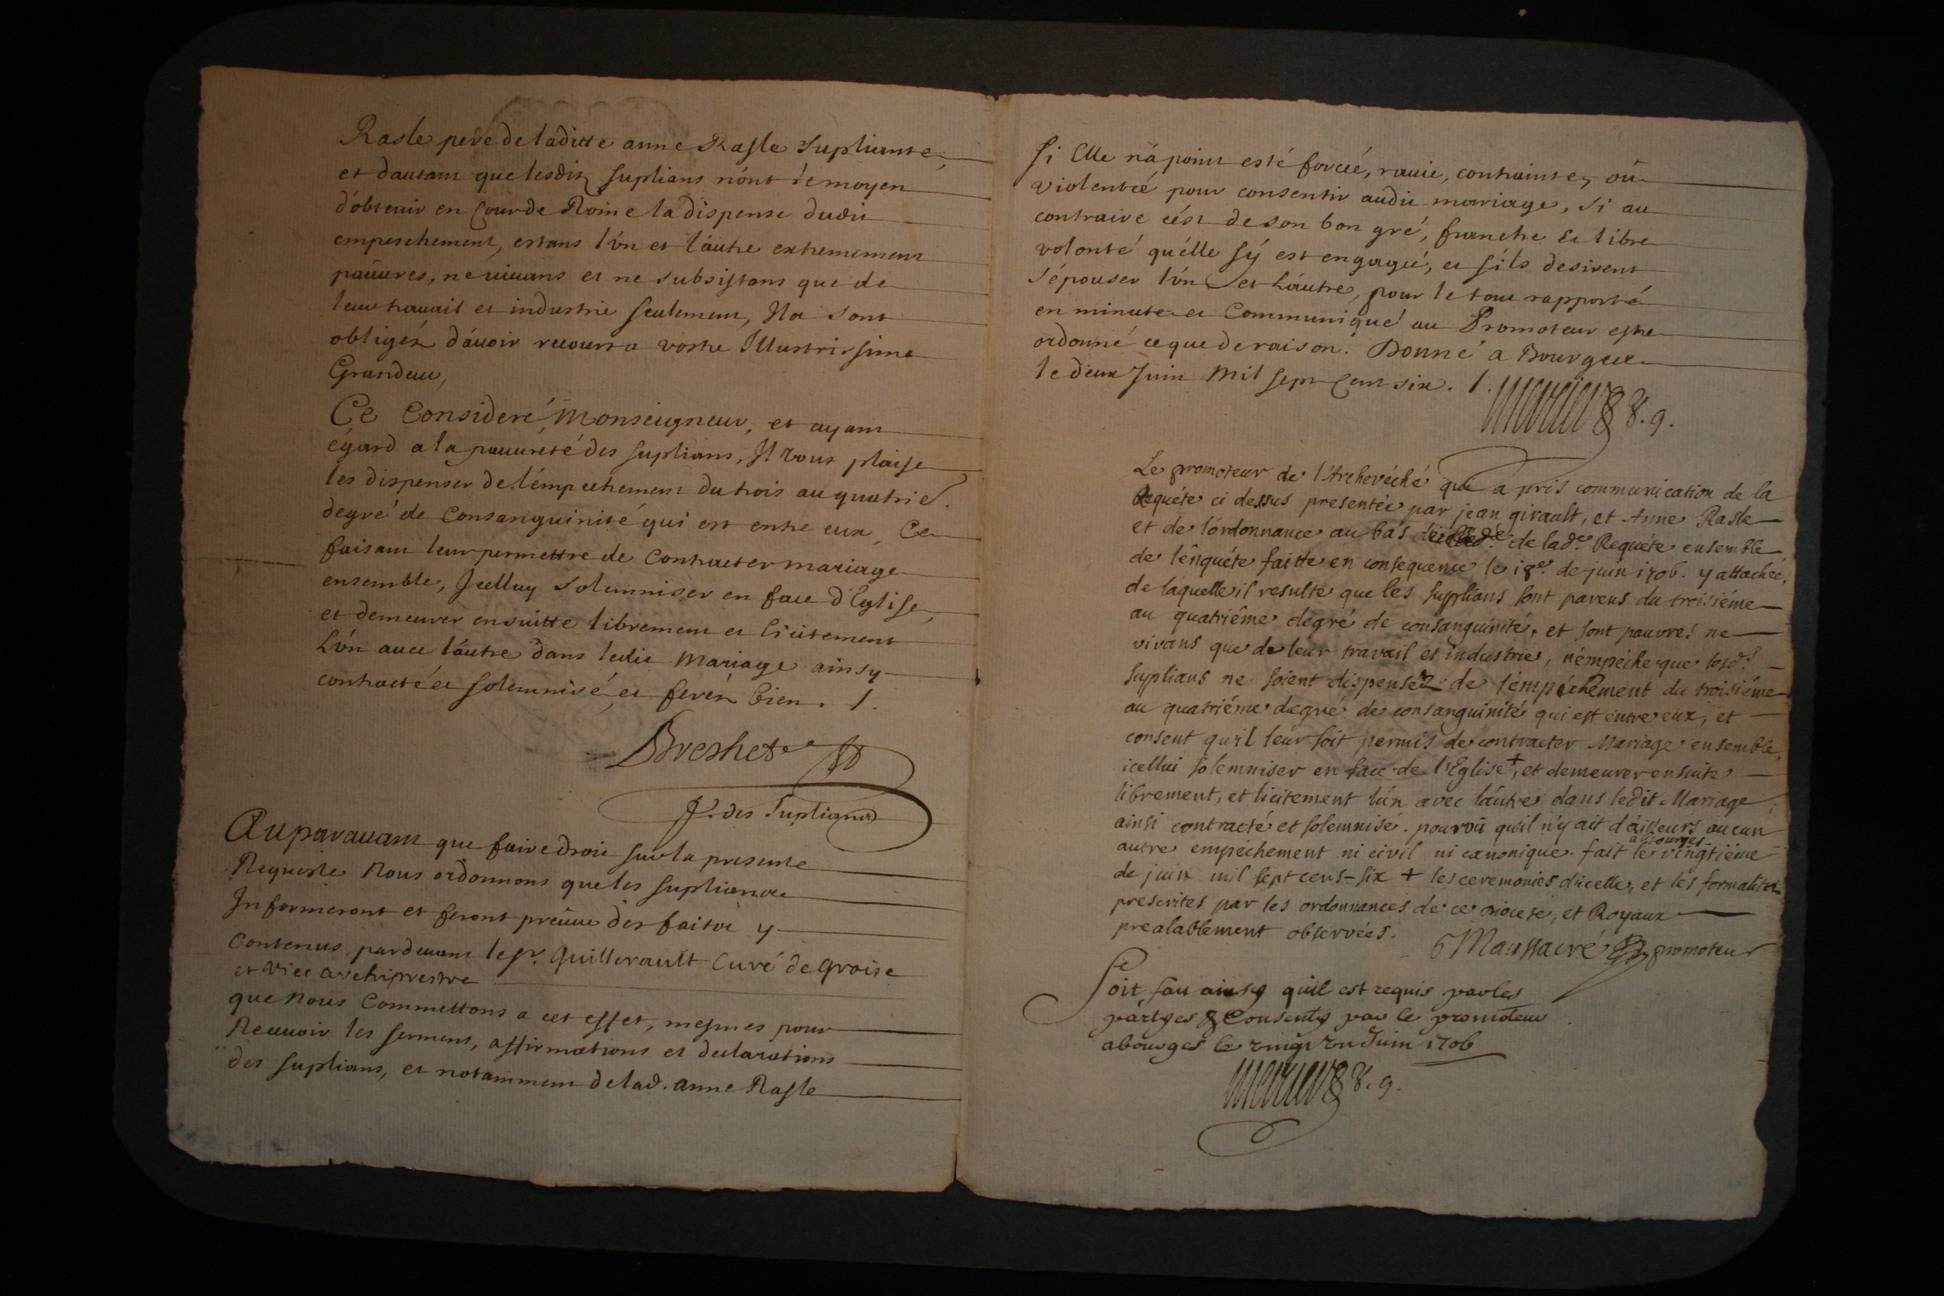 Rasle pere de laditte anne Rasle supliante,
et dautant que lesdits suplians n'ont le moyen
d'obtenir en Cour de Rome la dispense dudit
empeschement, estans l'ún et l'áutre extremement
paúures, ne viuans et ne subsistans que de
leur trauail et industrie seulement, Ils sont
obligéz d'áuoir recours a vostre Illustrissime
Grandeur,
Ce Consideré, Monseigneur, et ayant
égard a la pauureté des suplians, Il vous plaise
les dispenser de l'émpechement du trois au quatrié.
degré de Consanguinité qui est entre eux, Ce
faisant leur permettre de Contracter mariage
ensemble, Icelluy solemniser en face d'Eglise,
et demeurer ensuitte librement et licitement
L'ún auec l'áutre dans ledit Mariage ainsy
contracté et solemnisé, et feréz bien. /.
Breshet
P. des supliands
Auparauant que faire droit sur la presente
Requeste Nous ordonnons que les supliands
Informeront et feront preúue des faits y
Contenus pardeuant le sr. Guillerault Curé de Groise
et Vice archiprestre
que nous Commettons a cet effet, mesmes pour
Receuoir les serment, affirmations et declarations
des suplians, et notamment de lad. anne Rasle
si Elle n'á point esté forcée, rauie, contrainte, oú
violentée pour consentir audit mariage, si au
contraire c'ést de son bon gré, franche et libre
volonté qu'élle s'ý est engagée, et s'ils desirent
s'épouser l'ún et L'áutre, pour le tout rapporté
en minute et Communiqué au Promoteur estre
ordonné ce que de raison. Donné a Bourges
le deux Juin Mil sept Cent six. /.
8. g.
Le promoteur de l'Archevéché qui a pris communication de la
Requéte ci dessus presentée par jean girault, et Anne Rasle
et de l'ordonnance au bas de lade. Requéte ensemble
de l'enquéte faitte en consequence le 18e. de juin 1706. y attachée,
de laquelle il resulte que les supplians sont parens du troisiéme
au quatriéme degré de consanguinité, et sont pauvres ne
vivans que de leur travail et industrie, n'empéche que lesd.
supplians ne soient dispensez de l'émpéchement du troisiéme
au quatriéme degré de consanguinité qui est entre eux, et
consent qu'il leur soit permis de contracter Mariage ensemble,
icellui solemniser en face de l'Eglise +, et demeurer ensuite
librement, et licitement l'ún avec l'áutre dans ledit Mariage
ainsi contracté et solemnisé. pourvû qu'il n'y ait d'áilleurs aucun
autre empéchement ni civil ni canonique. fait a Bourges le vingtiéme
de juin mil sept cens-six + les ceremonies d'icelle, et les formalitez
prescrites par les ordonnances de ce diocese, et Royaux
prealablement observées.
Maussacré promoteur
Soit fait ainsy quil est requis par les
partyes & Consenty par le promoteur
a bourges le vingt un Juin 1706
8. g.